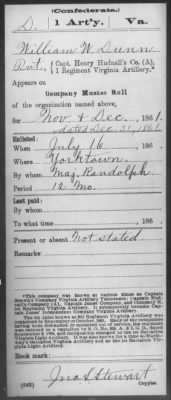 (Confederate.)
D. 1 Art'y. Va.
William W. Dunn
Pvt, Capt. Henry Hudnall's Co. (A),
1 Regiment Virginia Artillery.
Appears on
Company Muster Roll
of the organization named above,
for Nov & Dec, 1861.
dated Dec. 31, 1861
Enlisted:
When July 16, 186
Where Yorktown
By whom Maj. Randolph
Period 12 Mo.
Last paid:
By whom
To what time , 186
Present or absent Not stated
Remarks:
Book mark:
(642) Jno S Stewart
Copyist.